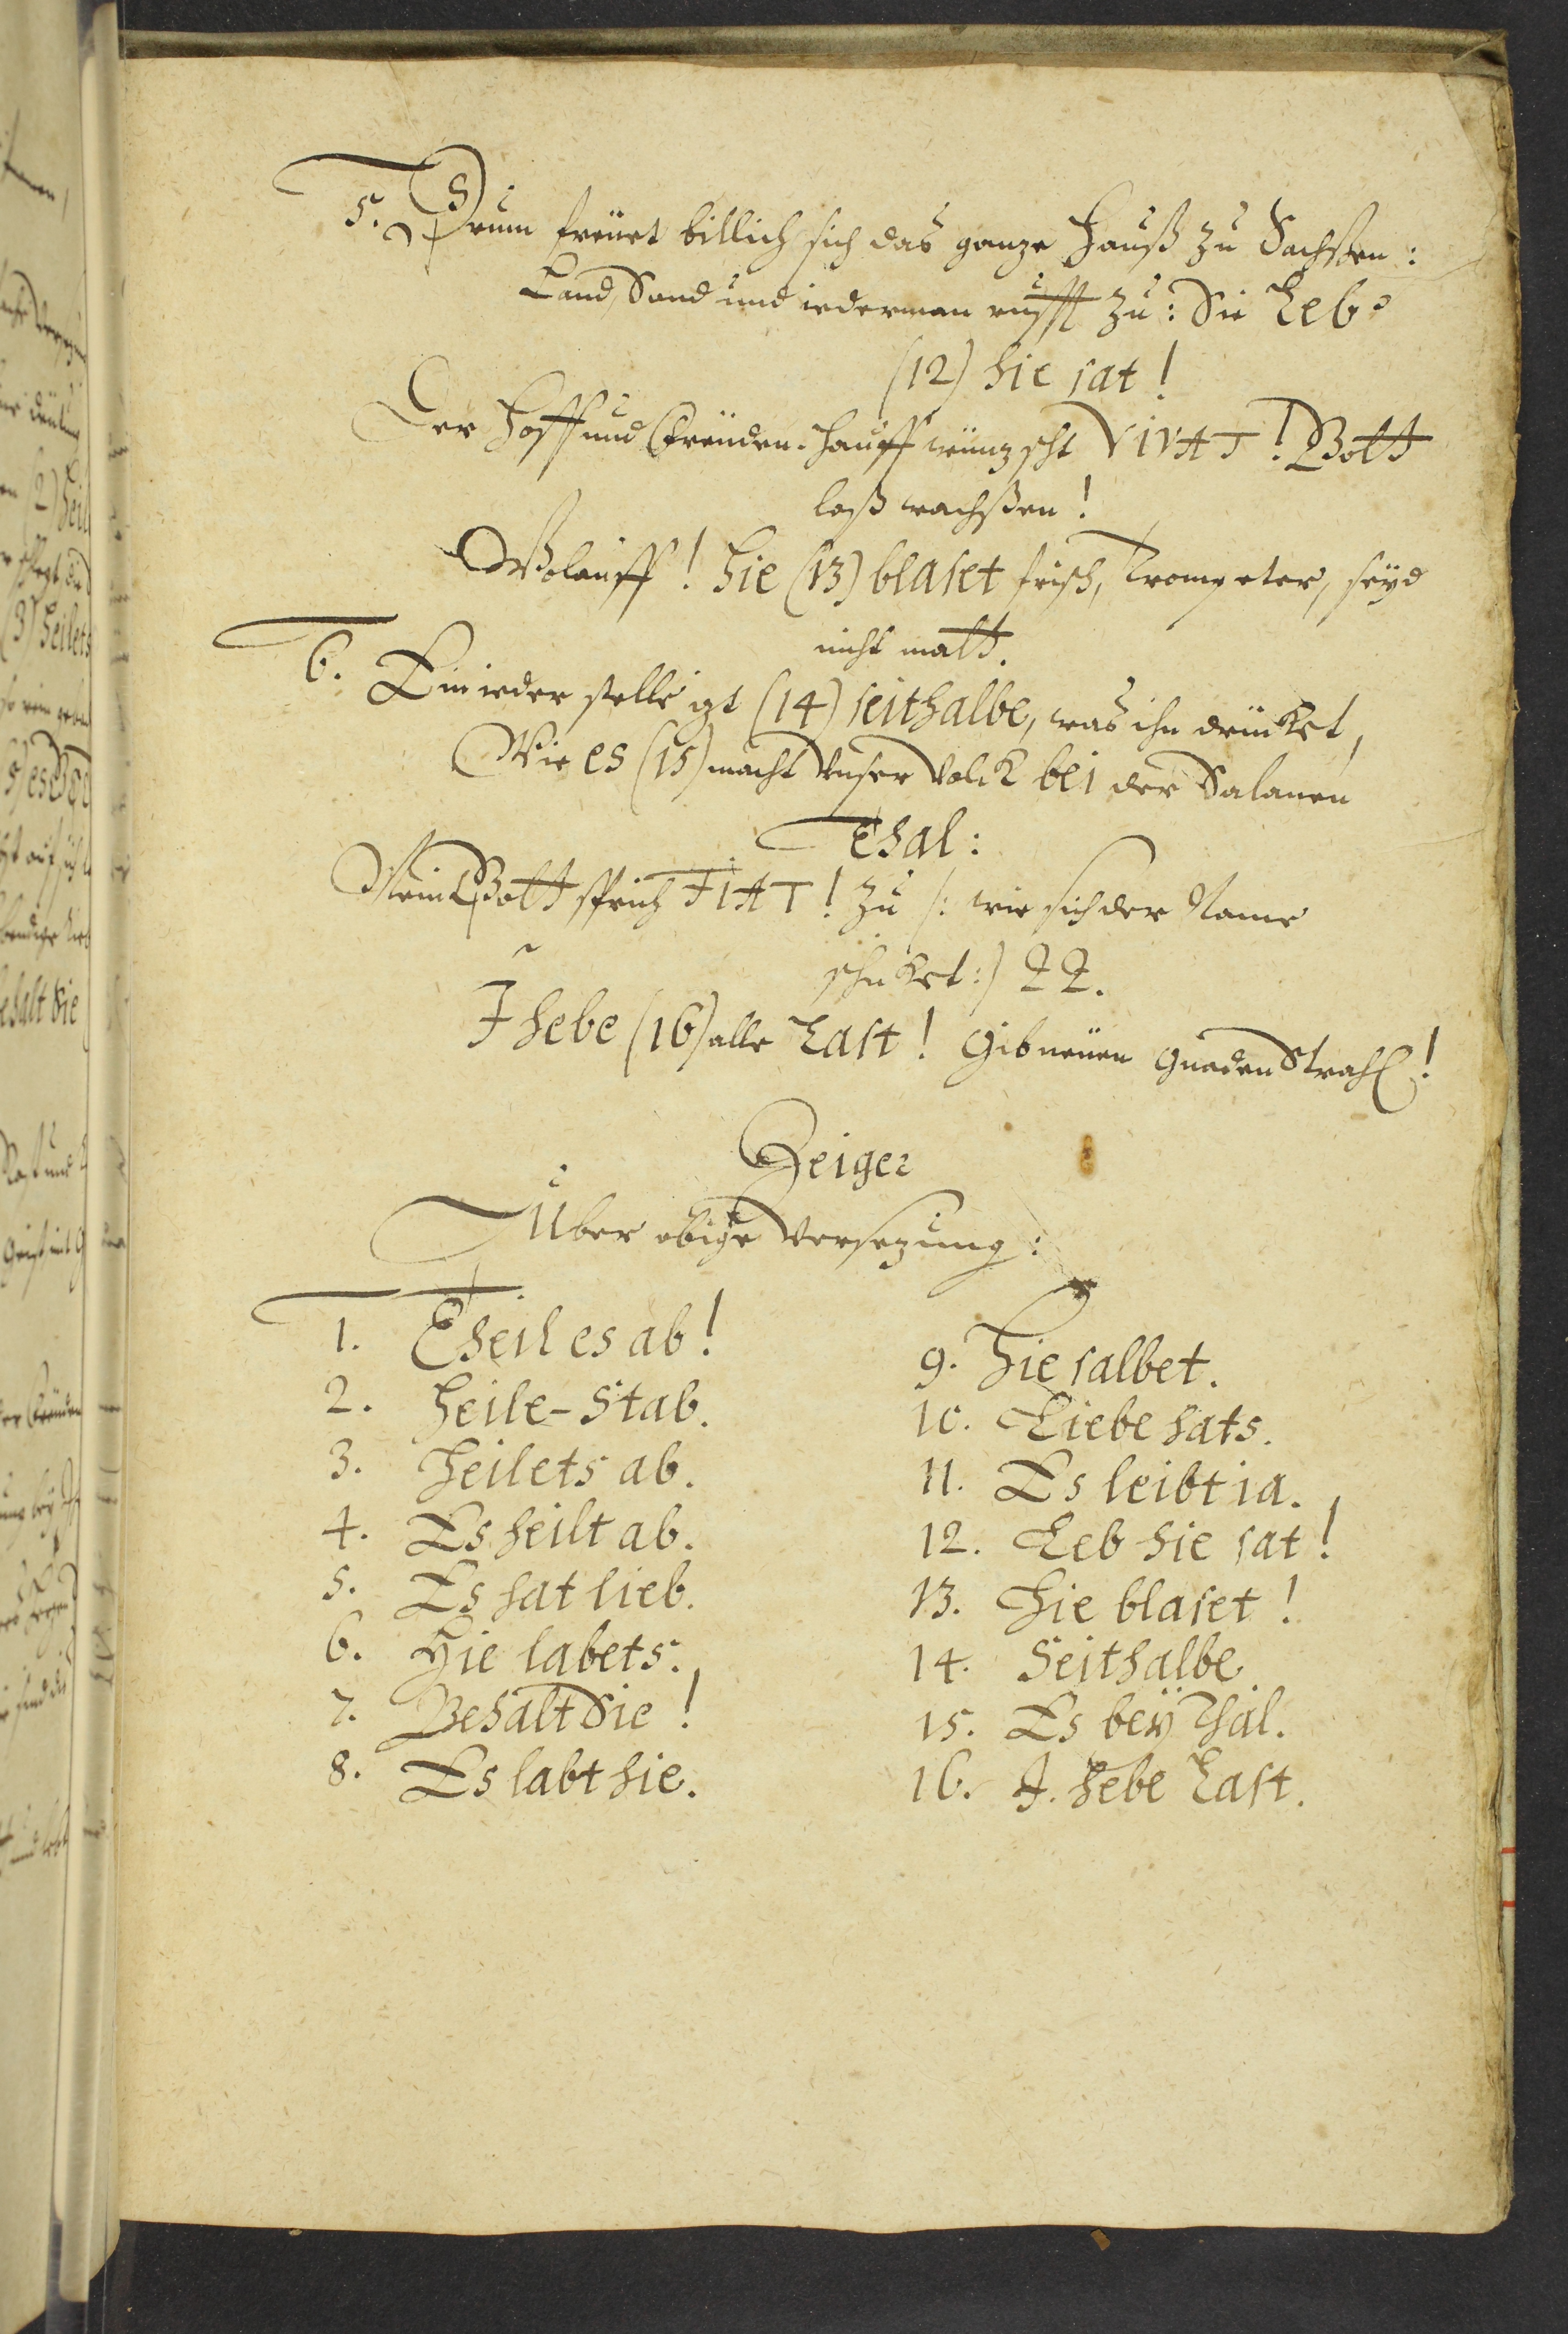 5. Drum freuet billich sich das ganze Hauß zu Sachßen:
Land, Sand und iederman rufft zu: Sie Leb
(12) hie sat!
Der Hoff und Freuden-Hauff wünzscht VIVAT! Gott
laß wachßen!
Wolauff! Hie (13) blaset frisch, Trompeter, seyd
nicht matt.
6. Ein ieder stelle izt (14) seithalbe, was ihn drücket,
Wie es (15) macht Unser Volck bei der Salanen
Thal:
Mein Gott sprich FIAT! zu /: wie sich der Name
schicket:)
I hebe (16) alle Last! Gib neuen Gnaden Strahl!
Zeiger
Über obige Versezung:
1. Theil es ab!
2. Heile-Stab.
3. Heilets ab.
4. Es heilt ab.
5. Es hat lieb.
6. Hie labets.
7. Behalt Sie!
8. Es labt hie.
9. Hie salbet.
10. Liebe hats.
11. Es leibt ia.
12. Leb hie sat!
13. Hie blaset!
14. Seithalbe
15. Es bey Thal.
16. I. hebe Last.